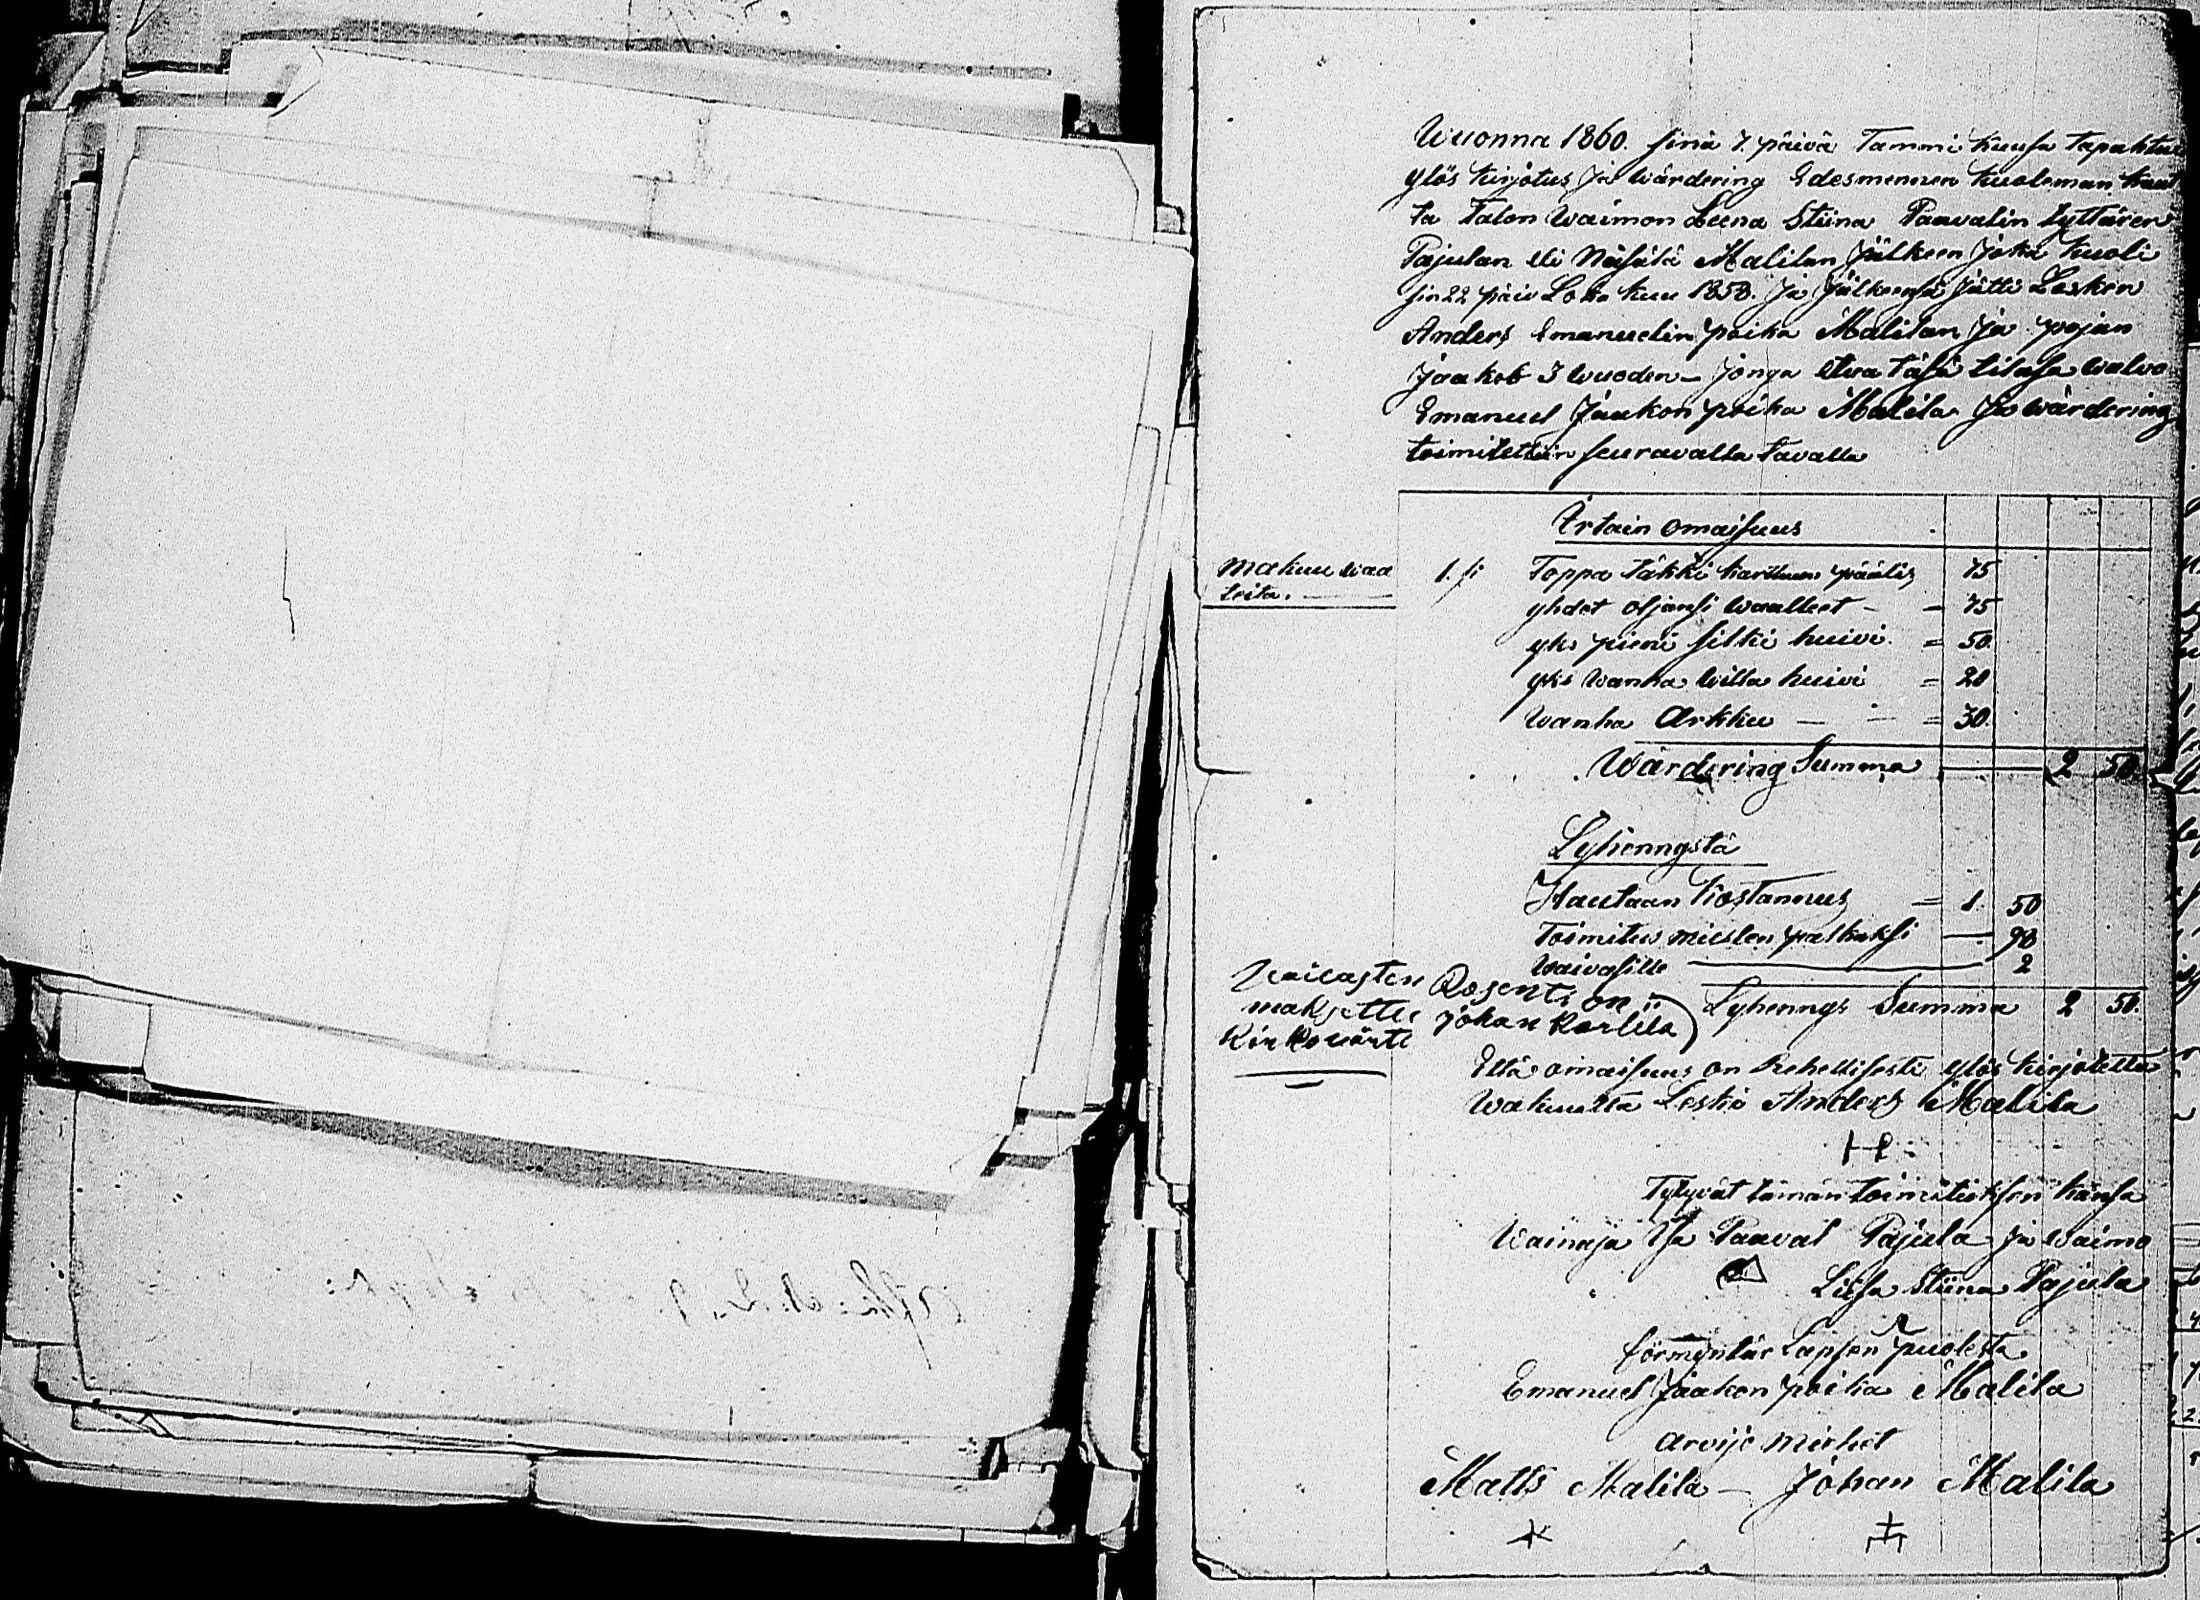 Wuonna 1860. sinä 7. päivä Tammi kuusa tapahtu
ylös kirjotus ja wärdering Edesmennen kuoleman kaut
ta Talon waimon Leena Stiina Paawalin tyttären
Pajulan eli Malilan jälkeen joka kuoli
sin 22 päiv Loka kuu 1858. ja jälkeensä jätti Lesken
Anders Emanuelin poika Malilan ja pojan
Jaakob 3 wuoden – jonga etua täsä tilasa walvo
Emanuel Jaakon poika Malila ja wärdering
toimitettiin seuravalla tavalla
Irtain omaisuus
makuu waa
teita.
1. si Toppa täkki karttuun päälis 75
yhdet oljansi waatteet – = 75
yks pieni silki huivi = 50.
yks wanha willa huivi = 20
wanha Arkku – – = 30.
Wärdering Summa 2 50.
Lyhennystä
Hautaan kostannus = 1 50
Toimitus miesten palkaksi 98
Waivasille 2
Lyhennys Summa 2 50.
Vaivasten Rosenti on
maksettu Johan Karlila
Kirkovärti
Että omaisuus on Rehellisesti ylös kirjotettu
wakuutta Leski Anders Malila
Tytyvät tämän toimituksen kansa
Wainaja Isä Paaval Pajula ja waimo
Liisa Stiina Pajula
förmyntär Lapsen puolesta
Emanuel Jaakon poika Malila
arvijo miehet
Matts Malila – Johan Malila